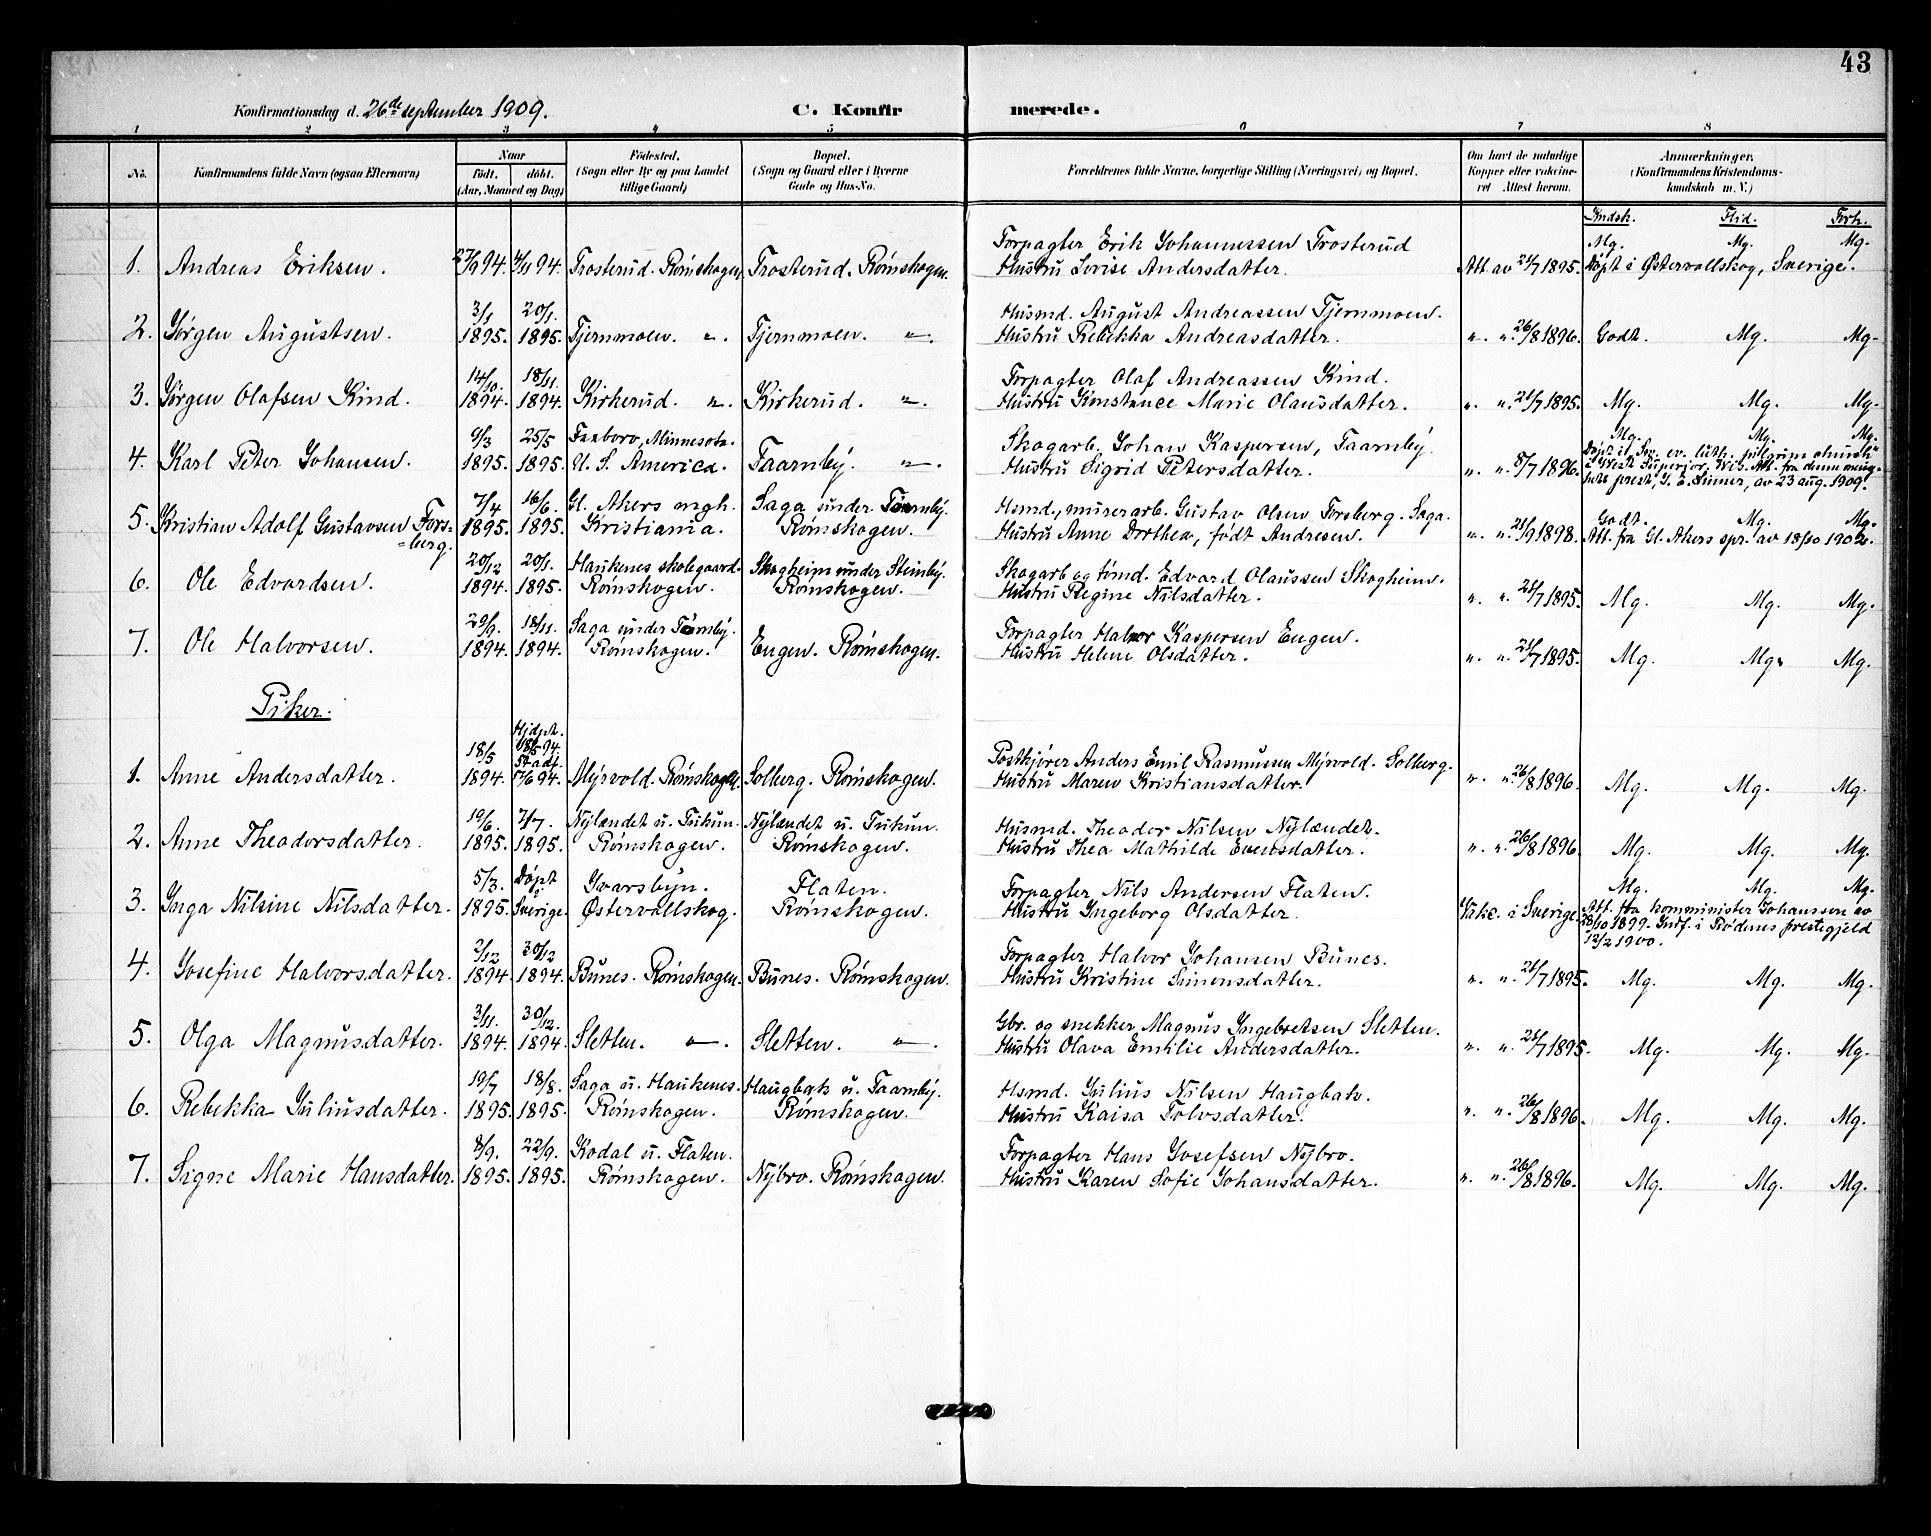 43
Konfirmationsdag d. 26de september 1909.
C. Konfirmerede.
1 2 3 4 5 6 7 8
No.
Konfirmandens fulde Navn (ogsaa Efternavn)
Naar
født. døbt.
(Aar, Maaned og Dag)
Fødested.
(Sogn eller By og paa Landet
tillige Gaard)
Bopæl.
(Sogn og Gaard eller i Byerne
Gade og Hus-No.
Forældrenes fulde Navne, borgerlige Stilling (Næringsvei) og Bopæl.
Om havt de naturlige
Kopper eller vaccine-
ret Attest herom.
Anmærkninger.
(Konfirmandens Kristendoms-
kundskab m. V.)
Kndsk. Flid. Forh.
Forpagter Erik Johannessen Trosterud Mg. Mg. Mg.
1. Andreas Eriksen. 27/9 94. 4/11 94. Trosterud. Rømskogen. Trosterud. Rømskogen. Hustru Lovise Andersdatter. Att av 21/7 1895. Døpt i Østervallskog, Sverige.
3/1 20/1. Husmd. August Andreassen Tjernmoen.
2. Jørgen Augustsen. 1895. 1895. Tjernmoen. "-. Tjernmoen. "-. Hustru Rebekka Andreasdatter. ". ". 26/8 1896. Godt. Mg. Mg.
14/10. 18/11. Forpagter Olaf Andreassen Kind.
3. Jørgen Olafsen Kind. 1894. 1894. Kirkerud. ". Kirkerud. "-. Hustru Konstance Marie Olausdatter. ". ". 21/7 1895. Mg. Mg. Mg.
9/3 25/5 Faxboro, Minnesota. Skogarb. Johan Kaspersen, Taarnby. Mg. Mg. Mg.
4. Karl Peter Johansen. 1895. 1895. U. S. America. Taarnby. "-. Hustru Sigrid Petersdatter. ". ". 8/7 1896. Døpt i Sw. ev. luth. pilgrim church
i West Superior, Wis. Att. fra denne menig-
hets prest, av 23 aug. 1909.
7/4 16/6. Gl. Akers mgh. Saga under Tørnby. Hsmd., murerarb. Gustav Olsen Forsberg. Saga. Godt. Mg. Mg.
5. Kristian Adolf Gustavsen Fors- 1895. 1895. Kristiania. Rømskogen. Hustru Anne Dorthea, født Andresen. ". ". 21/9 1898. Att. fra Gl. Akers spr. av 18/10 1902.
=berg.
20/12 20/1. Haukenes skolegaard. Skogheim under Steinby. Skogarb og tømd. Edvard Olaussen Skogheim.
6. Ole Edvardsen. 1894. 1895. Rømskogen. Rømskogen. Hustru Regine Nilsdatter. ". ". 21/7 1895. Mg. Mg. Mg.
29/9. 18/11. Saga under Tørnby. Forpagter Halvor Kaspersen Engen.
7. Ole Halvorsen. 1894. 1894. Rømskogen. Engen. Rømskogen. Hustru Helene Olsdatter. ". ". 21/7 1895. Mg. Mg. Mg.
Piker.
Hjdpt.
18/5 18/5 94. Postkjører Anders Emil Rasmussen Myrvold. Solberg.
Stadf.
1. Anne Andersdatter. 1894. 17/6 94. Myrvold. Rømskogen. Solberg. Rømskogen. Hustru Maren Kristiansdatter. ". ". 26/8 1896. Mg. Mg. Mg.
19/6. 7/7. Nylændet u. Tukun. Nylændet u. Tukun. Husmd. Theodor Nilsen Nylændet.
2. Anne Theodorsdatter. 1895. 1895. Rømskogen. Rømskogen. Hustru Thea Mathilde Evensdatter. ". ". 26/8 1896. Mg. Mg. Mg.
5/3. Døpt i Ivarsbyn. Flaten. Forpagter Nils Andersen Flaten. Mg. Mg. Mg.
3. Inga Nilsine Nilsdatter. 1895. Sverige. Østervallskog. Rømskogen. Hustru Ingeborg Olsdatter. Vakc. i Sverige. Att. fra komminister Johansson av
28/10 1899. Indf. i Rødenes prestegjeld
12/2 1900.
2/12 30/12 Forpagter Halvor Johansen Bunes.
4. Josefine Halvorsdatter. 1894. 1894. Bunes. Rømskogen. Bunes. Rømskogen. Hustru Kristine Simensdatter. ". ". 21/7 1895. Mg. Mg. Mg.
3/11. 30/12. Gbr. og snekker Magnus Ingebretsen Sletten.
5. Olga Magnusdatter. 1894. 1894. Sletten. "-. Sletten. "-. Hustru Olava Emilie Andersdatter. ". ". 21/7 1895. Mg. Mg. Mg.
19/7 18/8. Saga u. Haukenes. Haugbak u. Taarnby. Hsmd. Julius Nilsen Haugbak.
6. Rebekka Juliusdatter. 1895. 1895. Rømskogen. Rømskogen. Hustru Kaisa Tolvsdatter. ". ". 26/8 1896. Mg. Mg. Mg.
8/9. 22/9. Kodal u. Flaten. Forpagter Hans Josefsen Nybro.
7. Signe Marie Hansdatter. 1895. 1895. Rømskogen. Nybro. Rømskogen. Hustru Karen Sofie Johansdatter. ". ". 26/8 1896. Mg. Mg. Mg.